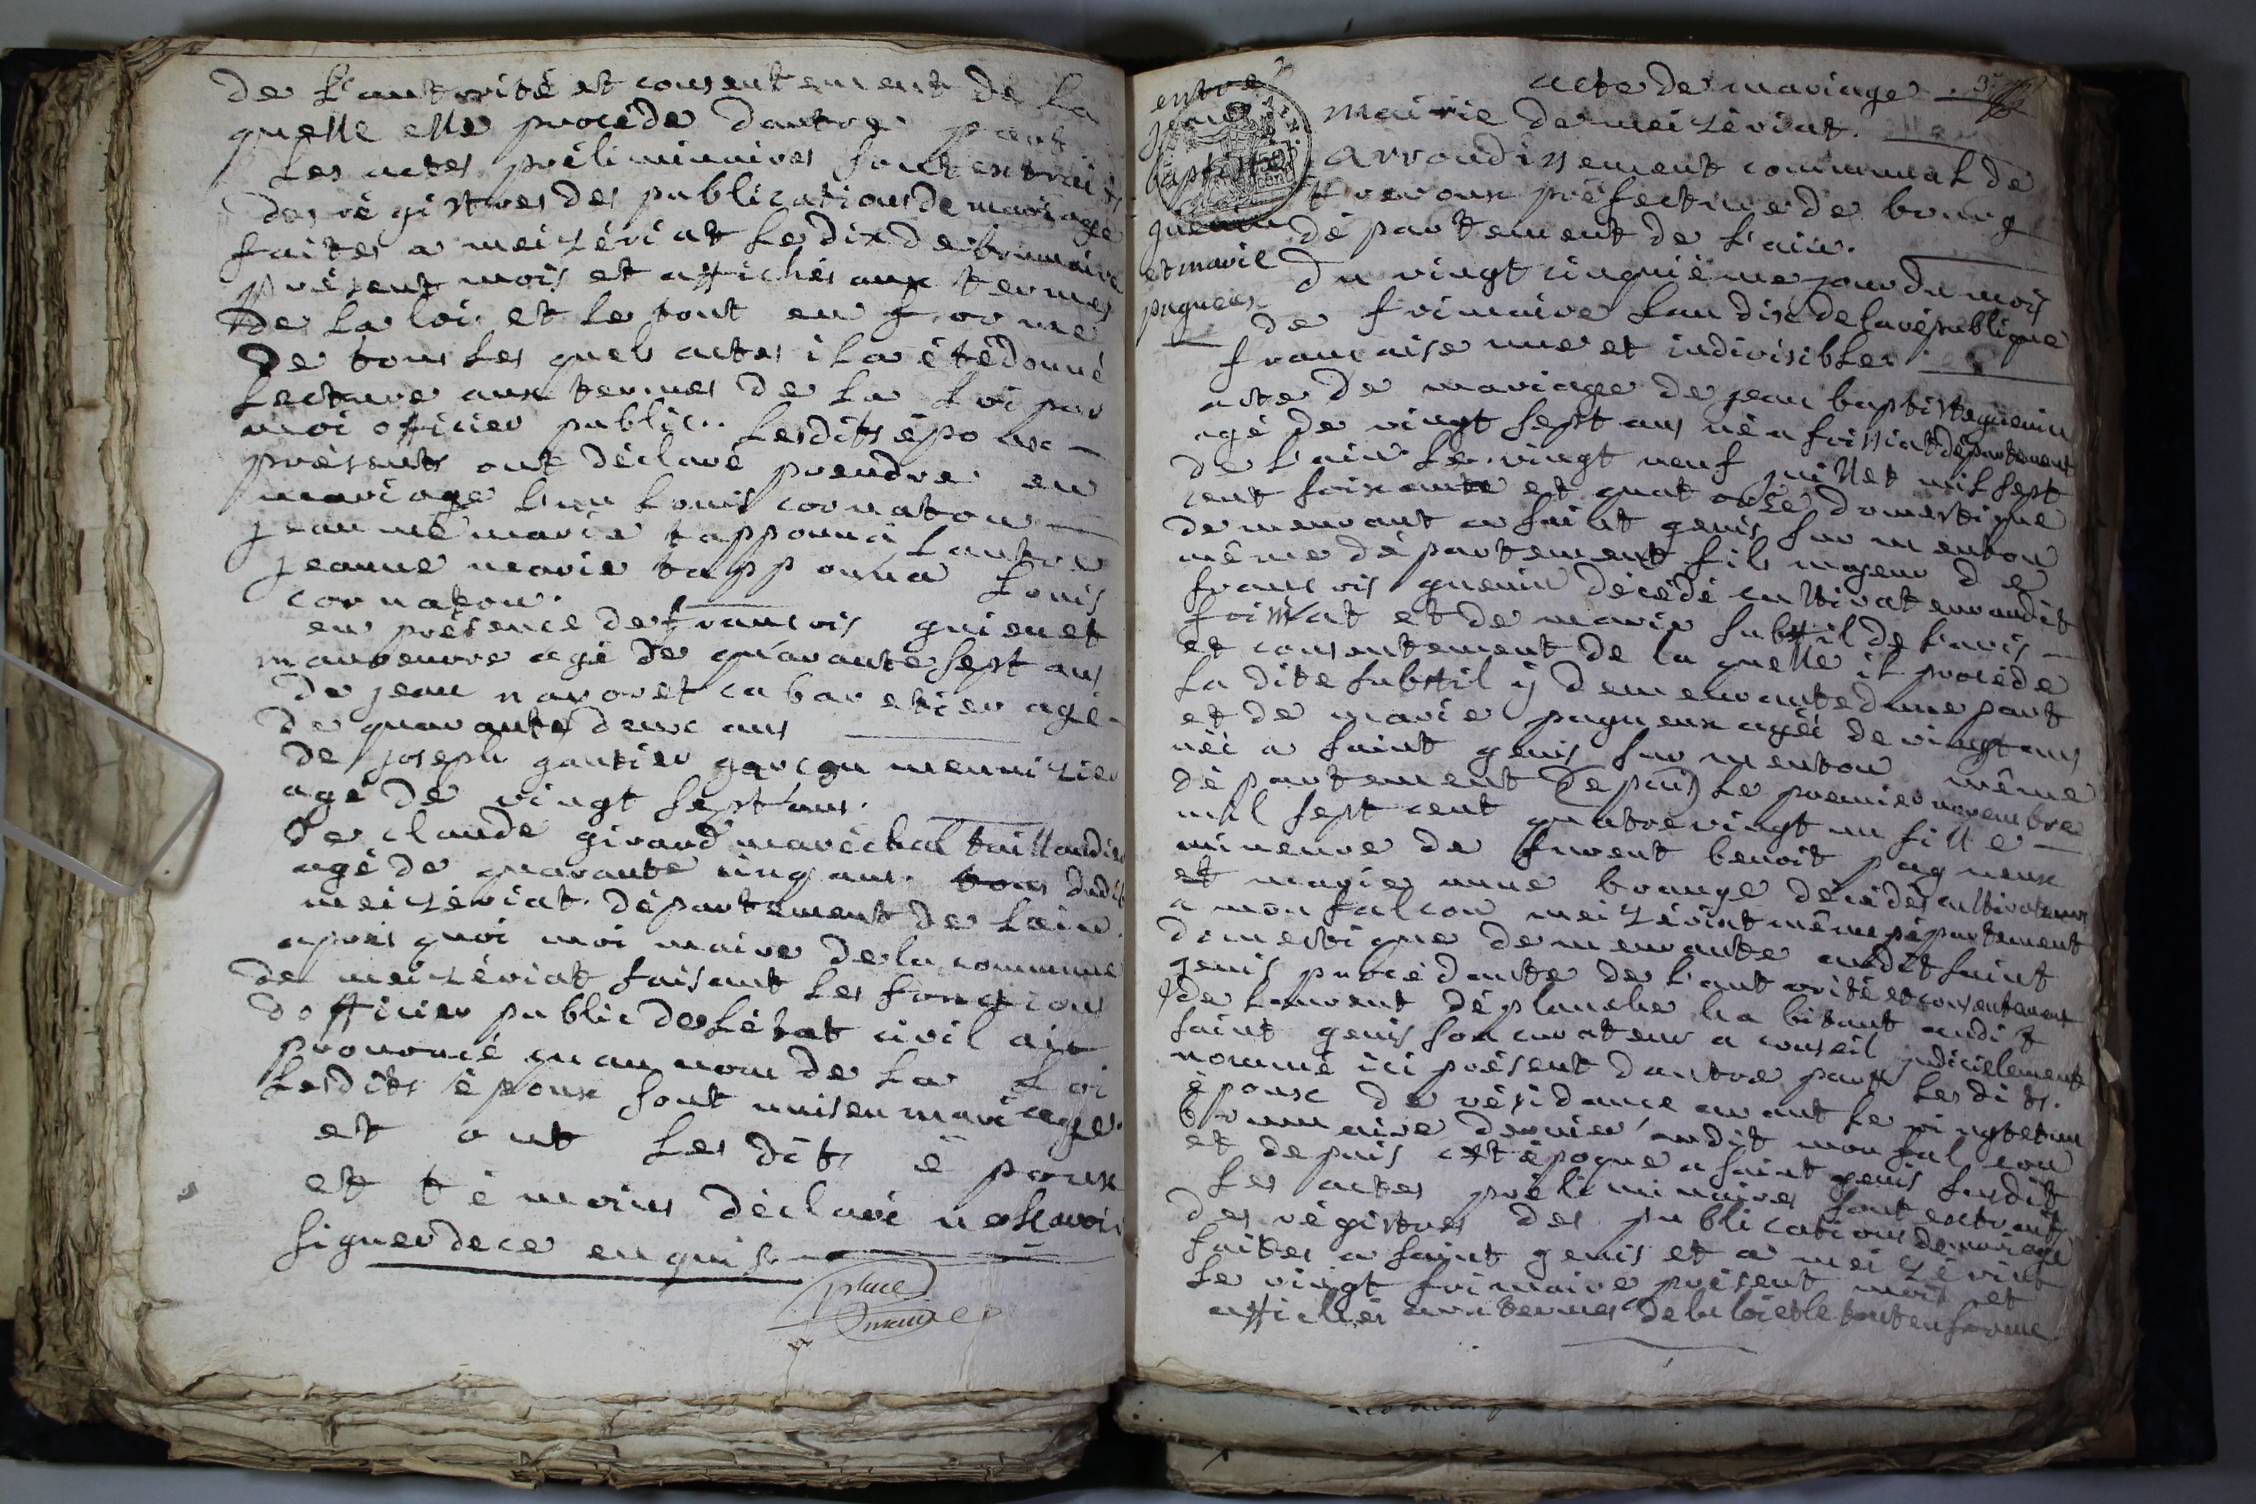 de l'autorité et consentement de la
quelle elle procéde dautre part.
Les actes préliminaires sont extraits
des régistres des publications de mariage
faites a meizériat le dix de brumaire
présent mois et affichés aux termes
de la loi et le tout en forme
De tous les quels actes il a été donné
Lecture aux termes de la loi par
moi officier public. Lesdits époux
présents ont déclaré prendre en
mariage l'un Louis cornaton
jeanne marie tapponna Lautre
jeanne marie tapponna Louis
cornaton.
en présence de francois guienet
manoeuvre agé de quarante sept ans
de jean navoret cabaretier agé
de quarante deux ans
de joseph gautier garçon menuizier
agé de vingt sept ans.
De claude girard maréchal taillandier
agé de quarante cinq ans. tous dudit
meizériat. département de Lain.
apres quoi moi maire de la commune
de meizériat faisant les fonctions
d officier public de Létat civil ait
prononcé quau nom de la Loi
Lesdits époux sont unis en mariage.
et ont Lesdits époux
et témoins déclaré ne scavoir
signer de ce enquis
place
maire
entre
jean
baptiste
guenin
et marie
pagneux
acte de mariage
mairie de meizériat.
arrondissement communal de
trevoux préfecture de bourg
département de L'ain.
du vingt cinquième jour du mois
de frimaire L'an dix de la république
francaise une et indivisible.
acte de mariage de jean baptiste guenin
agé de vingt sept ans né a foissiat département
de L'ain Le vingt neuf juillet mil sept
cent soixante et quatorze domestique
demeurant a saint genis sur menton
même département fils majeur de
francois guenin décédé cultivateur audit
foissiat et de marie substil de L'avis
et consentement de la quelle il procéde
La dite substil y demeurante dune part
et de marie pagneux agéé de vingt ans
néé a saint genis sur menton même
département depuis Le premier novembre
mil sept cent quatrevingt un fille
mineure de furent benoit pagneux
et marie anne brange décédés cultivateurs
a mon falcon meizériat même département
domestique demeurante audit saint
genis procédante de L'autorité et consentement
de Laurent déplanche habitant audit
saint genis son curateur a conseil judiciellement
nommé ici présent dautre part Lesdits.
époux de résidance avant le vingt et un
brumaire dernier audit mon falcon
et depuis cet époque a saint genis susdit
Les actes préliminaires sont extraits
des régistres des publications de mariage
faites a saint genis et a meizériat
Le vingt frimaire présent mois et
affichés aux termes de la loi et le tout en forme.